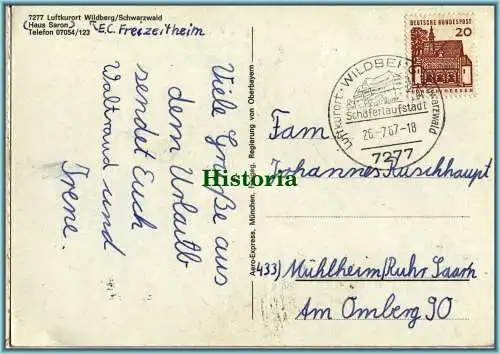 7277 Luftkurort Wildberg/Schwarzwald
(Haus Saron) E.C. Freizeitheim
Telefon 07054/123
Viele Grüße aus
dem Urlaub
sendet Euch
Waltraud und
Irene.
Aero-Express, München, Regierung von Oberbayern
DEUTSCHE BUNDESPOST
20
Luftkurort · WILDBERG
Schäferlaufstadt
26.-7.67-18
7277
Historia
Fam
Johannes Kuschhaupt
(433) Mühlheim/Ruhr Saarn
Am Omberg 90